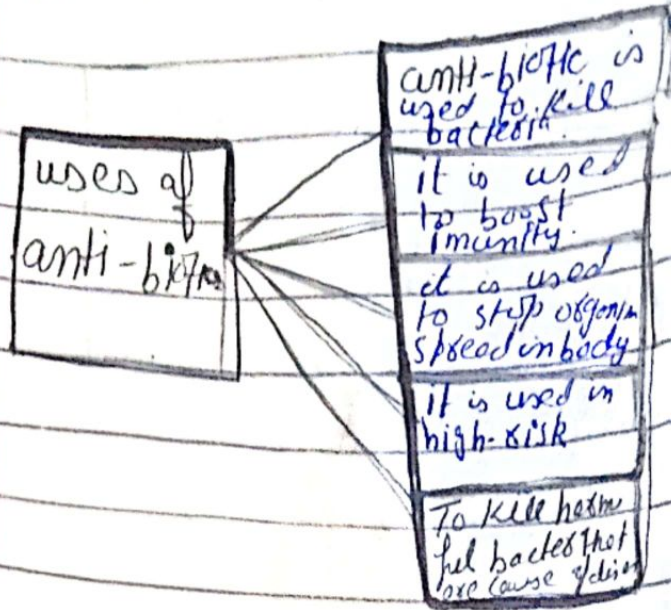 uses of
anti-biotics
anti-biotic is
used to kill
bacteria.
it is used
to boost
imunity.
it is used
to stop organism
spread in body
it is used in
high-risk
To kill harm
ful bacter that
are cause of